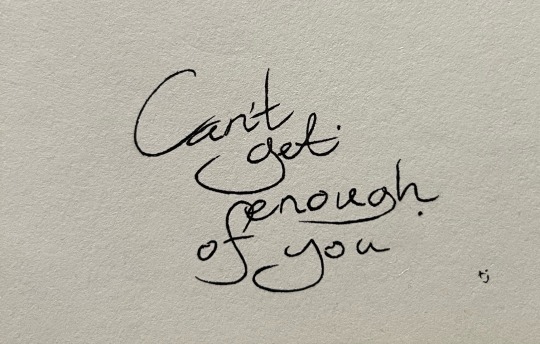 Can't
get
enough
of you